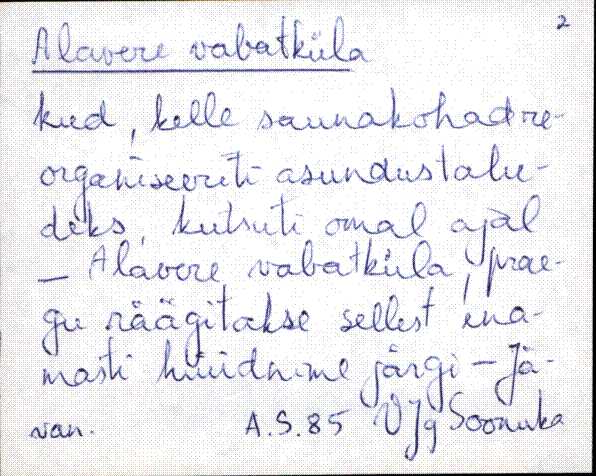 2
Alavere vabatküla
kud, kelle saunakohad re-
organiseeriti asundustalu-
deks, kutsuti omal ajal
– Alavere vabatküla, prae-
gu räägitakse sellest ena-
masti hüüdnime järgi – Jä-
van. A.S.85